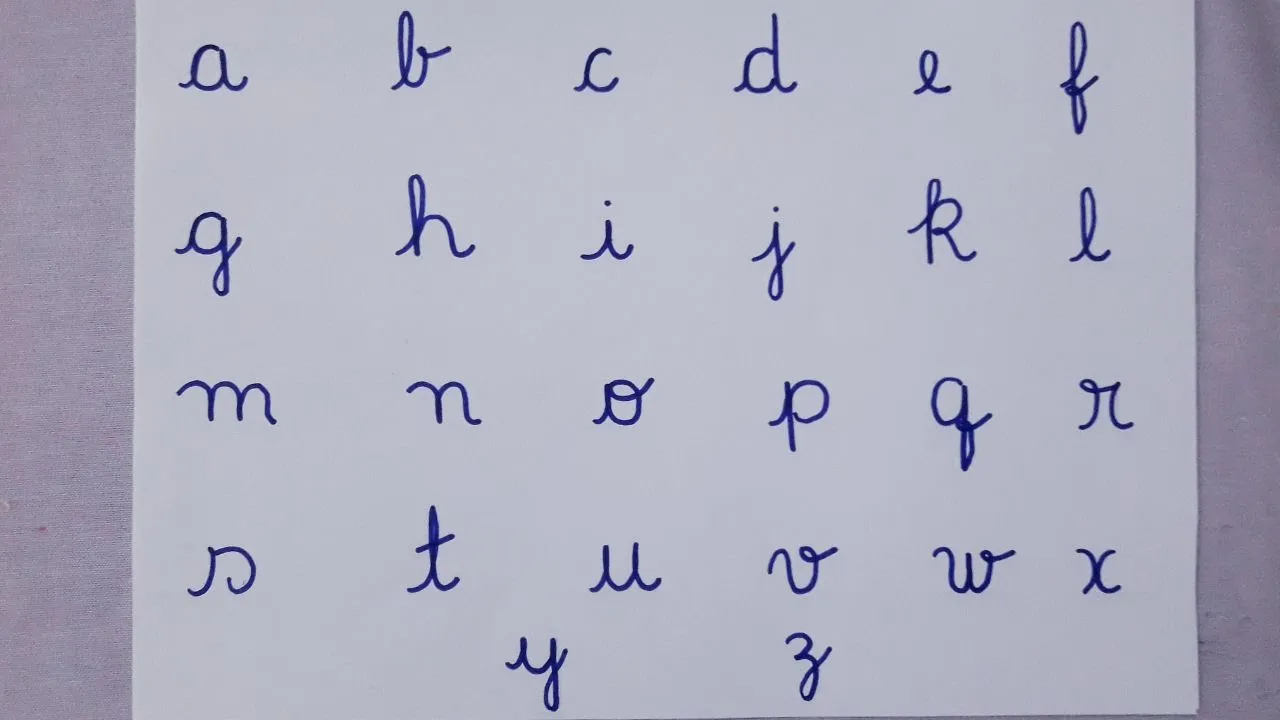 a b c d e f
g h i j k l
m n o p q r
s t u v w x
y z